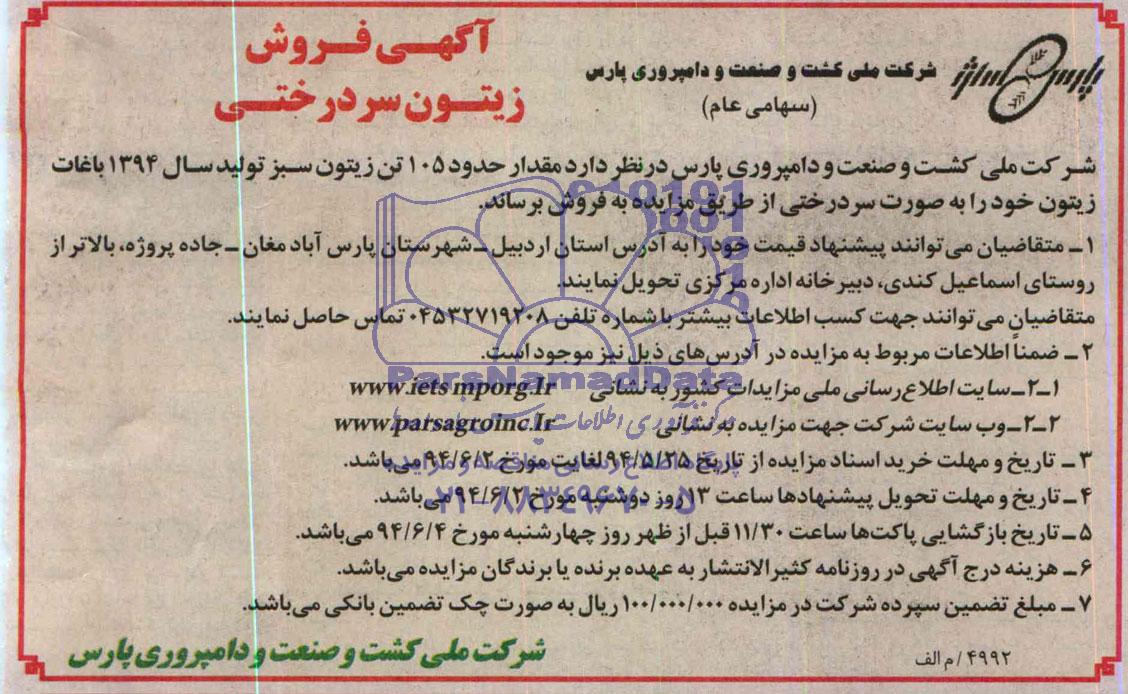 آگهی فروش
زیتون سردرختی
پارس
شرکت ملی کشت و صنعت و دامپروری پارس
(سهامی عام)
شرکت ملی کشت و صنعت و دامپروری پارس درنظر دارد مقدار حدود ۱۰۵ تن زیتون سبز تولید سال ۱۳۹۴ باغات
زیتون خود را به صورت سردرختی از طریق مزایده به فروش برساند.
۱ـ متقاضیان می‌توانند پیشنهاد قیمت خود را به آدرس استان اردبیل ـ شهرستان پارس آباد مغان ـ جاده پروژه، بالاتر از
روستای اسماعیل کندی، دبیرخانه اداره مرکزی تحویل نمایند.
متقاضیان می‌توانند جهت کسب اطلاعات بیشتر با شماره تلفن ۰۴۵۳۲۷۱۹۲۰۸ تماس حاصل نمایند.
۲ـ ضمناً اطلاعات مربوط به مزایده در آدرس‌های ذیل نیز موجود است.
۱ـ۲ـ سایت اطلاع رسانی ملی مزایدات کشور به نشانی www.iets mporg.Ir
ParsNamadData
۲ـ۲ـ وب سایت شرکت جهت مزایده به نشانی www.parsagroinc.Ir
۳ـ تاریخ و مهلت خرید اسناد مزایده از تاریخ ۹۴/۵/۲۵ لغایت مورخ ۹۴/۶/۲ می‌باشد.
پایگاه اطلاع رسانی مناقصه و مزایده
۴ـ تاریخ و مهلت تحویل پیشنهادها ساعت ۱۳ روز دوشنبه مورخ ۹۴/۶/۲ می‌باشد.
۰۲۱-۸۸۳۴۹۶۷۰-۵
۵ـ تاریخ بازگشایی پاکت‌ها ساعت ۱۱/۳۰ قبل از ظهر روز چهارشنبه مورخ ۹۴/۶/۴ می‌باشد.
۶ـ هزینه درج آگهی در روزنامه کثیرالانتشار به عهده برنده یا برندگان مزایده می‌باشد.
۷ـ مبلغ تضمین سپرده شرکت در مزایده ۱۰۰/۰۰۰/۰۰۰ ریال به صورت چک تضمین بانکی می‌باشد.
۴۹۹۲/م الف
شرکت ملی کشت و صنعت و دامپروری پارس